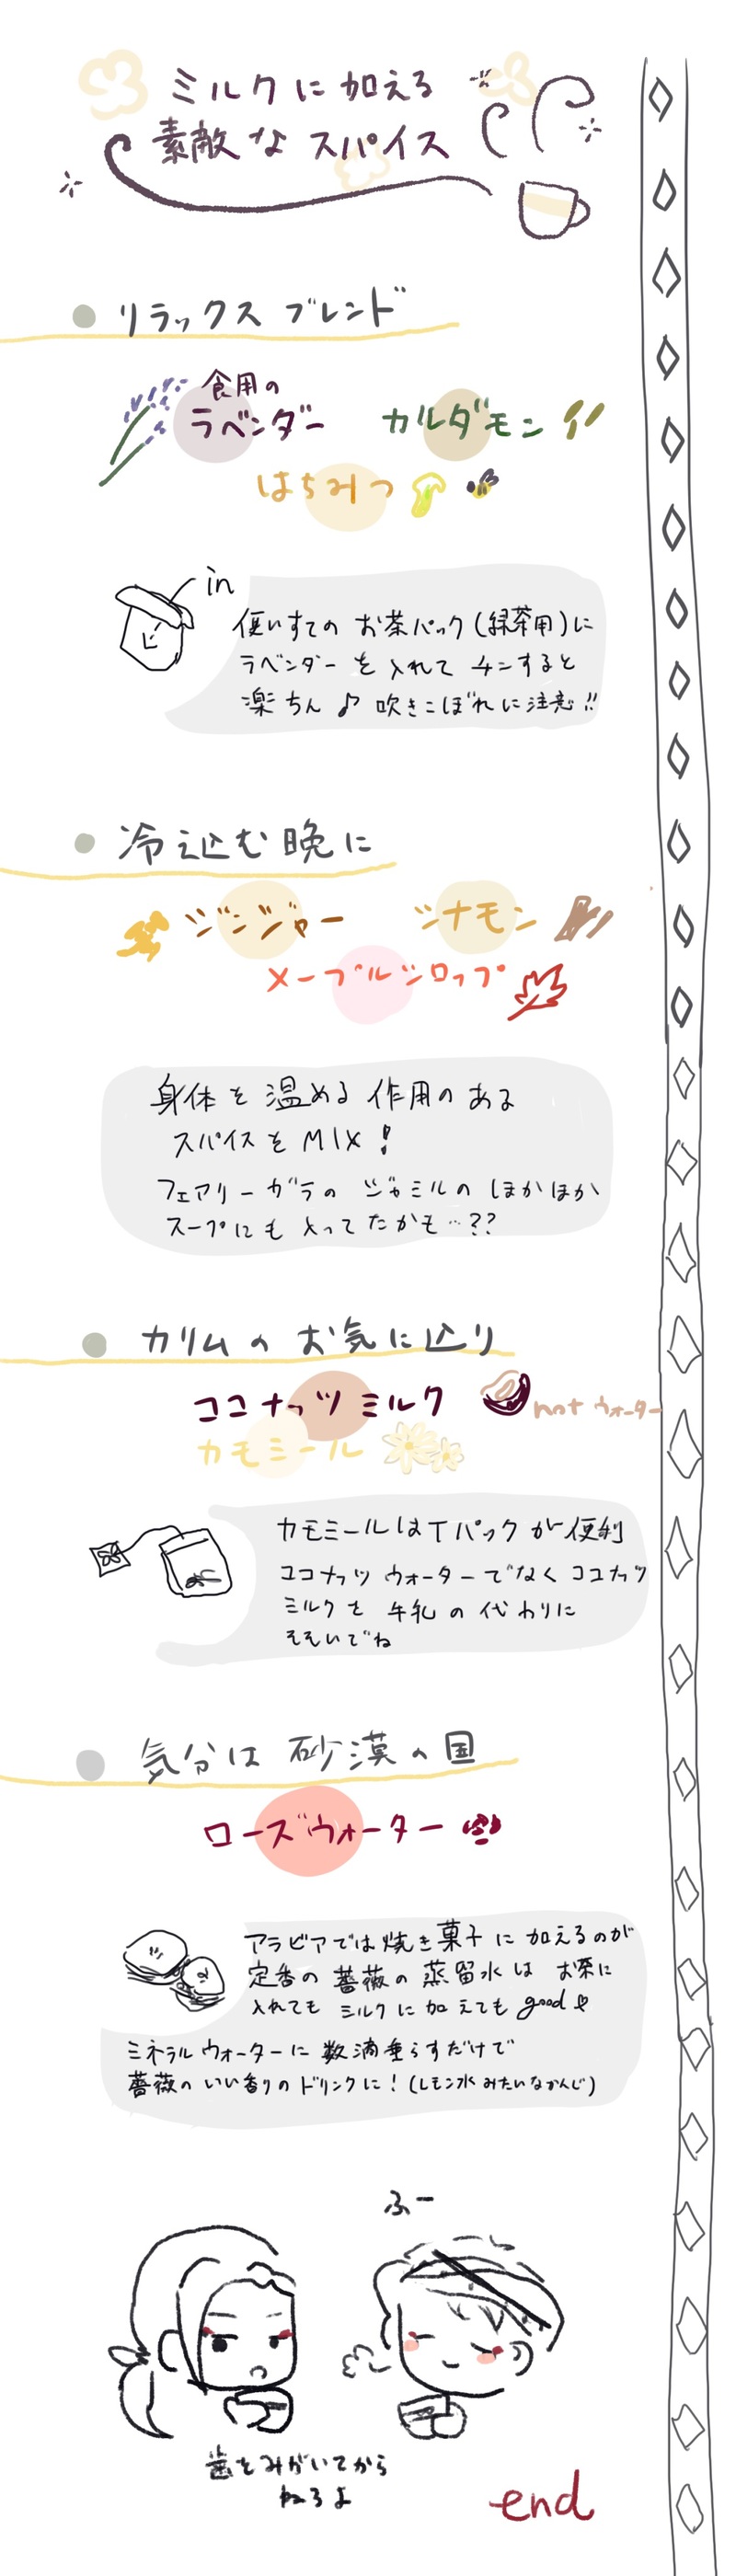 ミルクに加える
素敵なスパイス
リラックスブレンド
食用の
ラベンダー カルダモン
はちみつ
in
使いすての お茶パック(緑茶用)に
ラベンダーを入れてチンすると
楽ちん♪ 吹きこぼれに注意!!
冷え込む晩に
ジンジャー シナモン
メープルシロップ
身体を温める作用のある
スパイスをMIX!
フェアリーガラのジャミルのほかほか
スープにも入ってたかも…??
カリムのお気に込り
ココナッツミルク not ウォーター
カモミール
カモミールはTパックが便利
ココナッツウォーターでなくココナッツ
ミルクを牛乳の代わりに
そそいでね
気分は砂漠の国
ローズウォーター
アラビアでは焼き菓子に加えるのが
定番の薔薇の蒸留水はお茶に
入れてもミルクに加えてもgood♡
ミネラルウォーターに数滴垂らすだけで
薔薇のいい香りのドリンクに!(レモン水みたいなかんじ)
ふー
歯をみがいてから
ねろよ
end